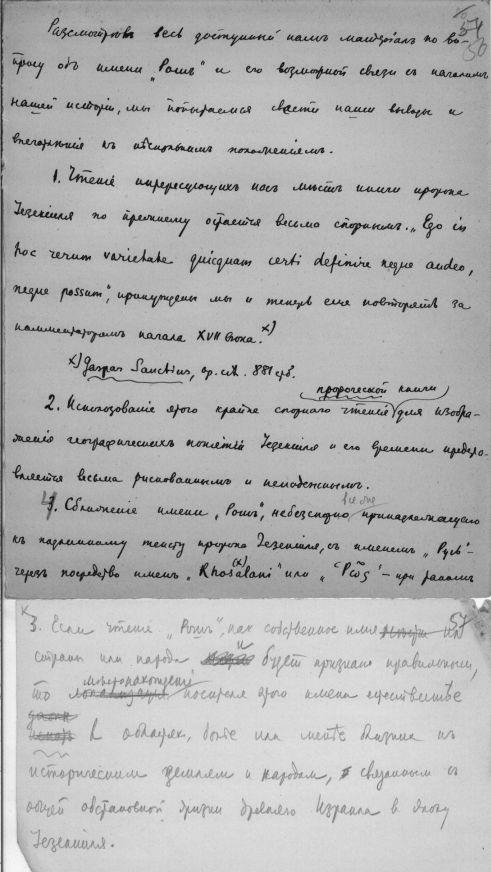 54
50
Разсмотрѣвъ весь доступный намъ матеріалъ по во-
просу объ имени „Рошъ" и его возможной связи съ началомъ
нашей исторіи, мы попытаемся свести наши выводы и
впечатлѣнія къ нѣсколькимъ положеніямъ.
1. Чтеніе интересующихъ насъ мѣстъ книги пророка
Іезекіиля по прежнему остается весьма спорнымъ. „Ego in
hoc rerum varietate quicquam certi definire neque audeo,
neque possum", принуждены мы и теперь еще повторять за
комментаторомъ начала XVII вѣка. x)
x) Gaspar Sanctius, op. cit. 881 стр.
пророческой книги
2. Использованіе этого крайне спорнаго чтенія для изобра-
женія географическихъ понятій Іезекіиля и его времени предста-
вляется весьма рискованнымъ и ненадежнымъ.
4. Сближеніе имени „Рошъ", небезспорно принадлежащаго
къ подлинному тексту пророка Іезекіиля, съ именемъ „Русь"
черезъ посредство именъ „Rhoxalani" или „Ῥῶς" – при разномъ
51
3. Если чтеніе „Рошъ", какъ собственное имя
страны или народа и будетъ признано правильнымъ,
мѣстонахожденіе
то локализація носителя этого имени естественнѣе
в областях, более или менѣе близких къ
историческим землям и народам, связанным съ
общей обстановкой жизни древняго Израиля в эпоху
Іезекіиля.